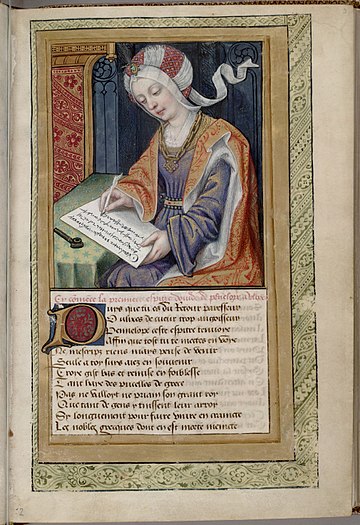 Cy comēce la premiere espitre dovide de penelope a ulixes
Puis que tu es du Retour paresseux
O ulixes de cueur trop angoisseux
Penelope ceste espitre tenvoie
Affin que tost tu te mettes en voye
Ne mescrips riens mais pense de venir
Seule a toy suys avez en souvenir
Troye gist bas et remise en foiblesse
Tant haye des pucelles de grece
Pas ne valloit ne priam son grant roy
Que tant de gens y tinssent leur arroy
Sy longuement pour faire vivre en crainte
Les nobles grecques dont en est morte mainte
2